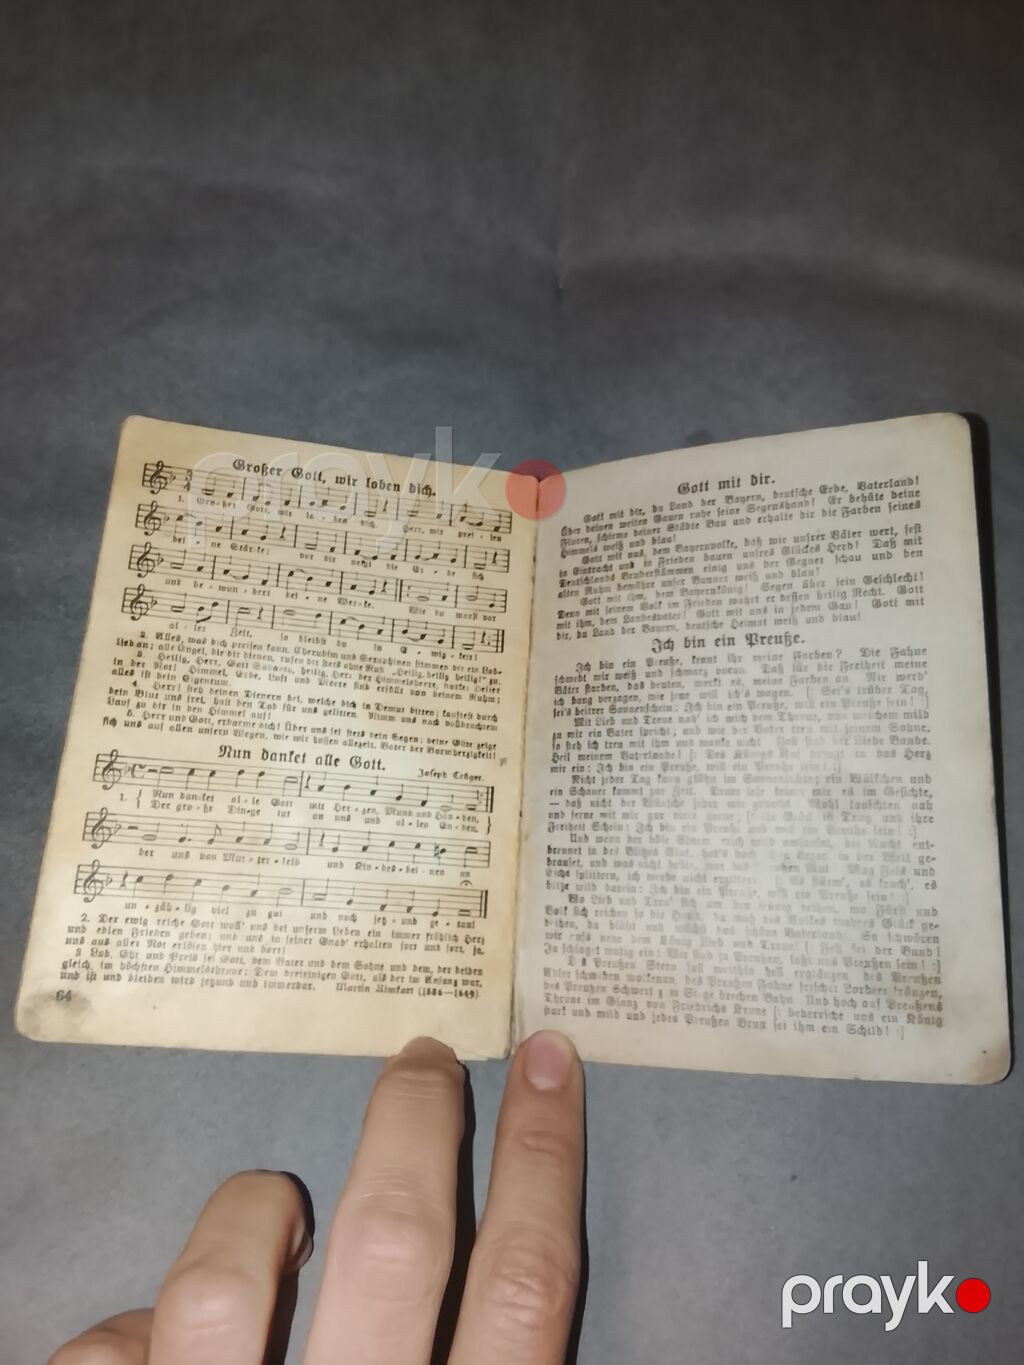 Großer Gott, wir loben dich.
1. Gro-ßer Gott, wir lo-ben dich, Herr, wir prei-sen
dei-ne Stär-ke; vor dir neigt die Er-de sich
und be-wun-dert dei-ne Wer-ke. Wie du warst vor
al-ler Zeit, so bleibst du in E-wig-keit!
2. Alles, was dich preisen kann, Cherubim und Seraphinen stimmen dir ein Lob-
lied an; alle Engel, die dir dienen, rufen dir stets ohne Ruh „Heilig, heilig, heilig!“ zu.
3. Heilig, Herr, Gott Sabaoth, heilig, Herr der Himmelsheere, starker Helfer
in der Not! Himmel, Erde, Luft und Meere sind erfüllt von deinem Ruhm;
alles ist dein Eigentum.
4. Herr! steh deinen Dienern bei, welche dich in Demut bitten; kauftest durch
dein Blut uns frei, hast den Tod für uns gelitten. Nimm uns nach vollbrachtem
Lauf zu dir in den Himmel auf!
5. Herr und Gott, erbarme dich! Über uns sei stets dein Segen; deine Güte zeige
sich uns auf allen unsern Wegen, wie wir hoffen allezeit, Vater der Barmherzigkeit!
Nun danket alle Gott.
Joseph Crüger.
1. Nun dan-ket al-le Gott mit Her-zen, Mund und Hän-den,
Der gro-ße Din-ge tut an uns und al-len En-den,
der uns von Mut-ter-leib und Kin-des-bei-nen an
un-zäh-lig viel zu gut und noch jetz-und ge-tan!
2. Der ewig reiche Gott woll' uns bei unserm Leben ein immer fröhlich Herz
und edlen Frieden geben; und uns in seiner Gnad' erhalten fort und fort, ja,
uns aus aller Not erlösen hier und dort!
3 Lob, Ehr und Preis sei Gott, dem Vater und dem Sohne und dem, der beiden
gleich, im höchsten Himmelsthrone: Dem dreieinigen Gott, als der im Anfang war,
und ist und bleiben wird jetzund und immerdar. Martin Rinkart (1586—1649)
64
Gott mit dir.
Gott mit dir, du Land der Bayern, deutsche Erde, Vaterland!
Über deinen weiten Gauen ruhe seine Segenshand! Er behüte deine
Fluren, schirme deiner Städte Bau und erhalte dir die Farben seines
Himmels weiß und blau!
Gott mit uns, dem Bayernvolke, daß wir unsrer Väter wert, fest
in Eintracht und in Frieden bauen unsres Glückes Herd! Daß mit
Deutschlands Bruderstämmen einig uns der Gegner schau und den
alten Ruhm bewähre unser Banner weiß und blau!
Gott mit ihm, dem Bayernkönig! Segen über sein Geschlecht!
Denn mit seinem Volk im Frieden wahrt er dessen heilig Recht. Gott
mit ihm, dem Landesvater! Gott mit uns in jedem Gau! Gott mit
dir, du Land der Bayern, deutsche Heimat weiß und blau!
Ich bin ein Preuße.
Ich bin ein Preuße, kennt ihr meine Farben? Die Fahne
schwebt mir weiß und schwarz voran. Daß für die Freiheit meine
Väter starben, das deuten, merkt es, meine Farben an. Nie werd'
ich bang verzagen, wie jene will ich's wagen. [: Sei's trüber Tag,
sei's heitrer Sonnenschein: Ich bin ein Preuße, will ein Preuße sein! :]
Mit Lieb und Treue nah' ich mich dem Throne, von welchem mild
zu mir ein Vater spricht; und wie der Vater treu mit seinem Sohne,
so steh ich treu mit ihm und wanke nicht Fest sind der Liebe Bande.
Heil meinem Vaterlande! [: Des Königs Ruf dringt in das Herz
mir ein: Ich bin ein Preuße, will ein Preuße sein! :]
Nicht jeder Tag kann glühn im Sonnenlichte; ein Wölkchen und
ein Schauer kommt zur Zeit. Drum lese keiner mir es im Gesichte,
— daß nicht der Wünsche jeder mir gedeiht Wohl tauschten nah
und ferne mit mir gar viele gerne; [: ihr Glück ist Trug und ihre
Freiheit Schein: Ich bin ein Preuße, will ein Preuße sein! :]
Und wenn der böse Sturm mich wild umsauset, die Nacht ent-
brennet in des Blitzes Glut, hat's doch schon ärger in der Welt ge-
brauset, und was nicht bebte, war des Preußen Mut Mag Fels und
Eiche splittern, ich werde nicht erzittern: [: Es stürm', es krach', es
blitze wild darein: Ich bin ein Preuße, will ein Preuße sein! :]
Wo Lieb und Treu' sich um den König reihen, wo Fürst und
Volk sich reichen so die Hand, da muß des Volkes wahres Glück ge-
deihen, da blüht und wächst das schöne Vaterland. So schwören
wir aufs neue dem König Lieb und Treue! [: Fest sei der Bund!
Ja schlaget mutig ein: Wir sind ja Preußen, laßt uns Preußen sein! :]
Des Preußen Stern soll weithin hell erglänzen, des Preußen
Adler schweben wolkenan, des Preußen Fahne frischer Lorbeer kränzen,
des Preußen Schwert zum Siege brechen Bahn. Und hoch auf Preußens
Throne im Glanz von Friedrichs Krone [: beherrsche uns ein König
stark und mild und jedes Preußen Brust sei ihm ein Schild! :]
prayko
prayko